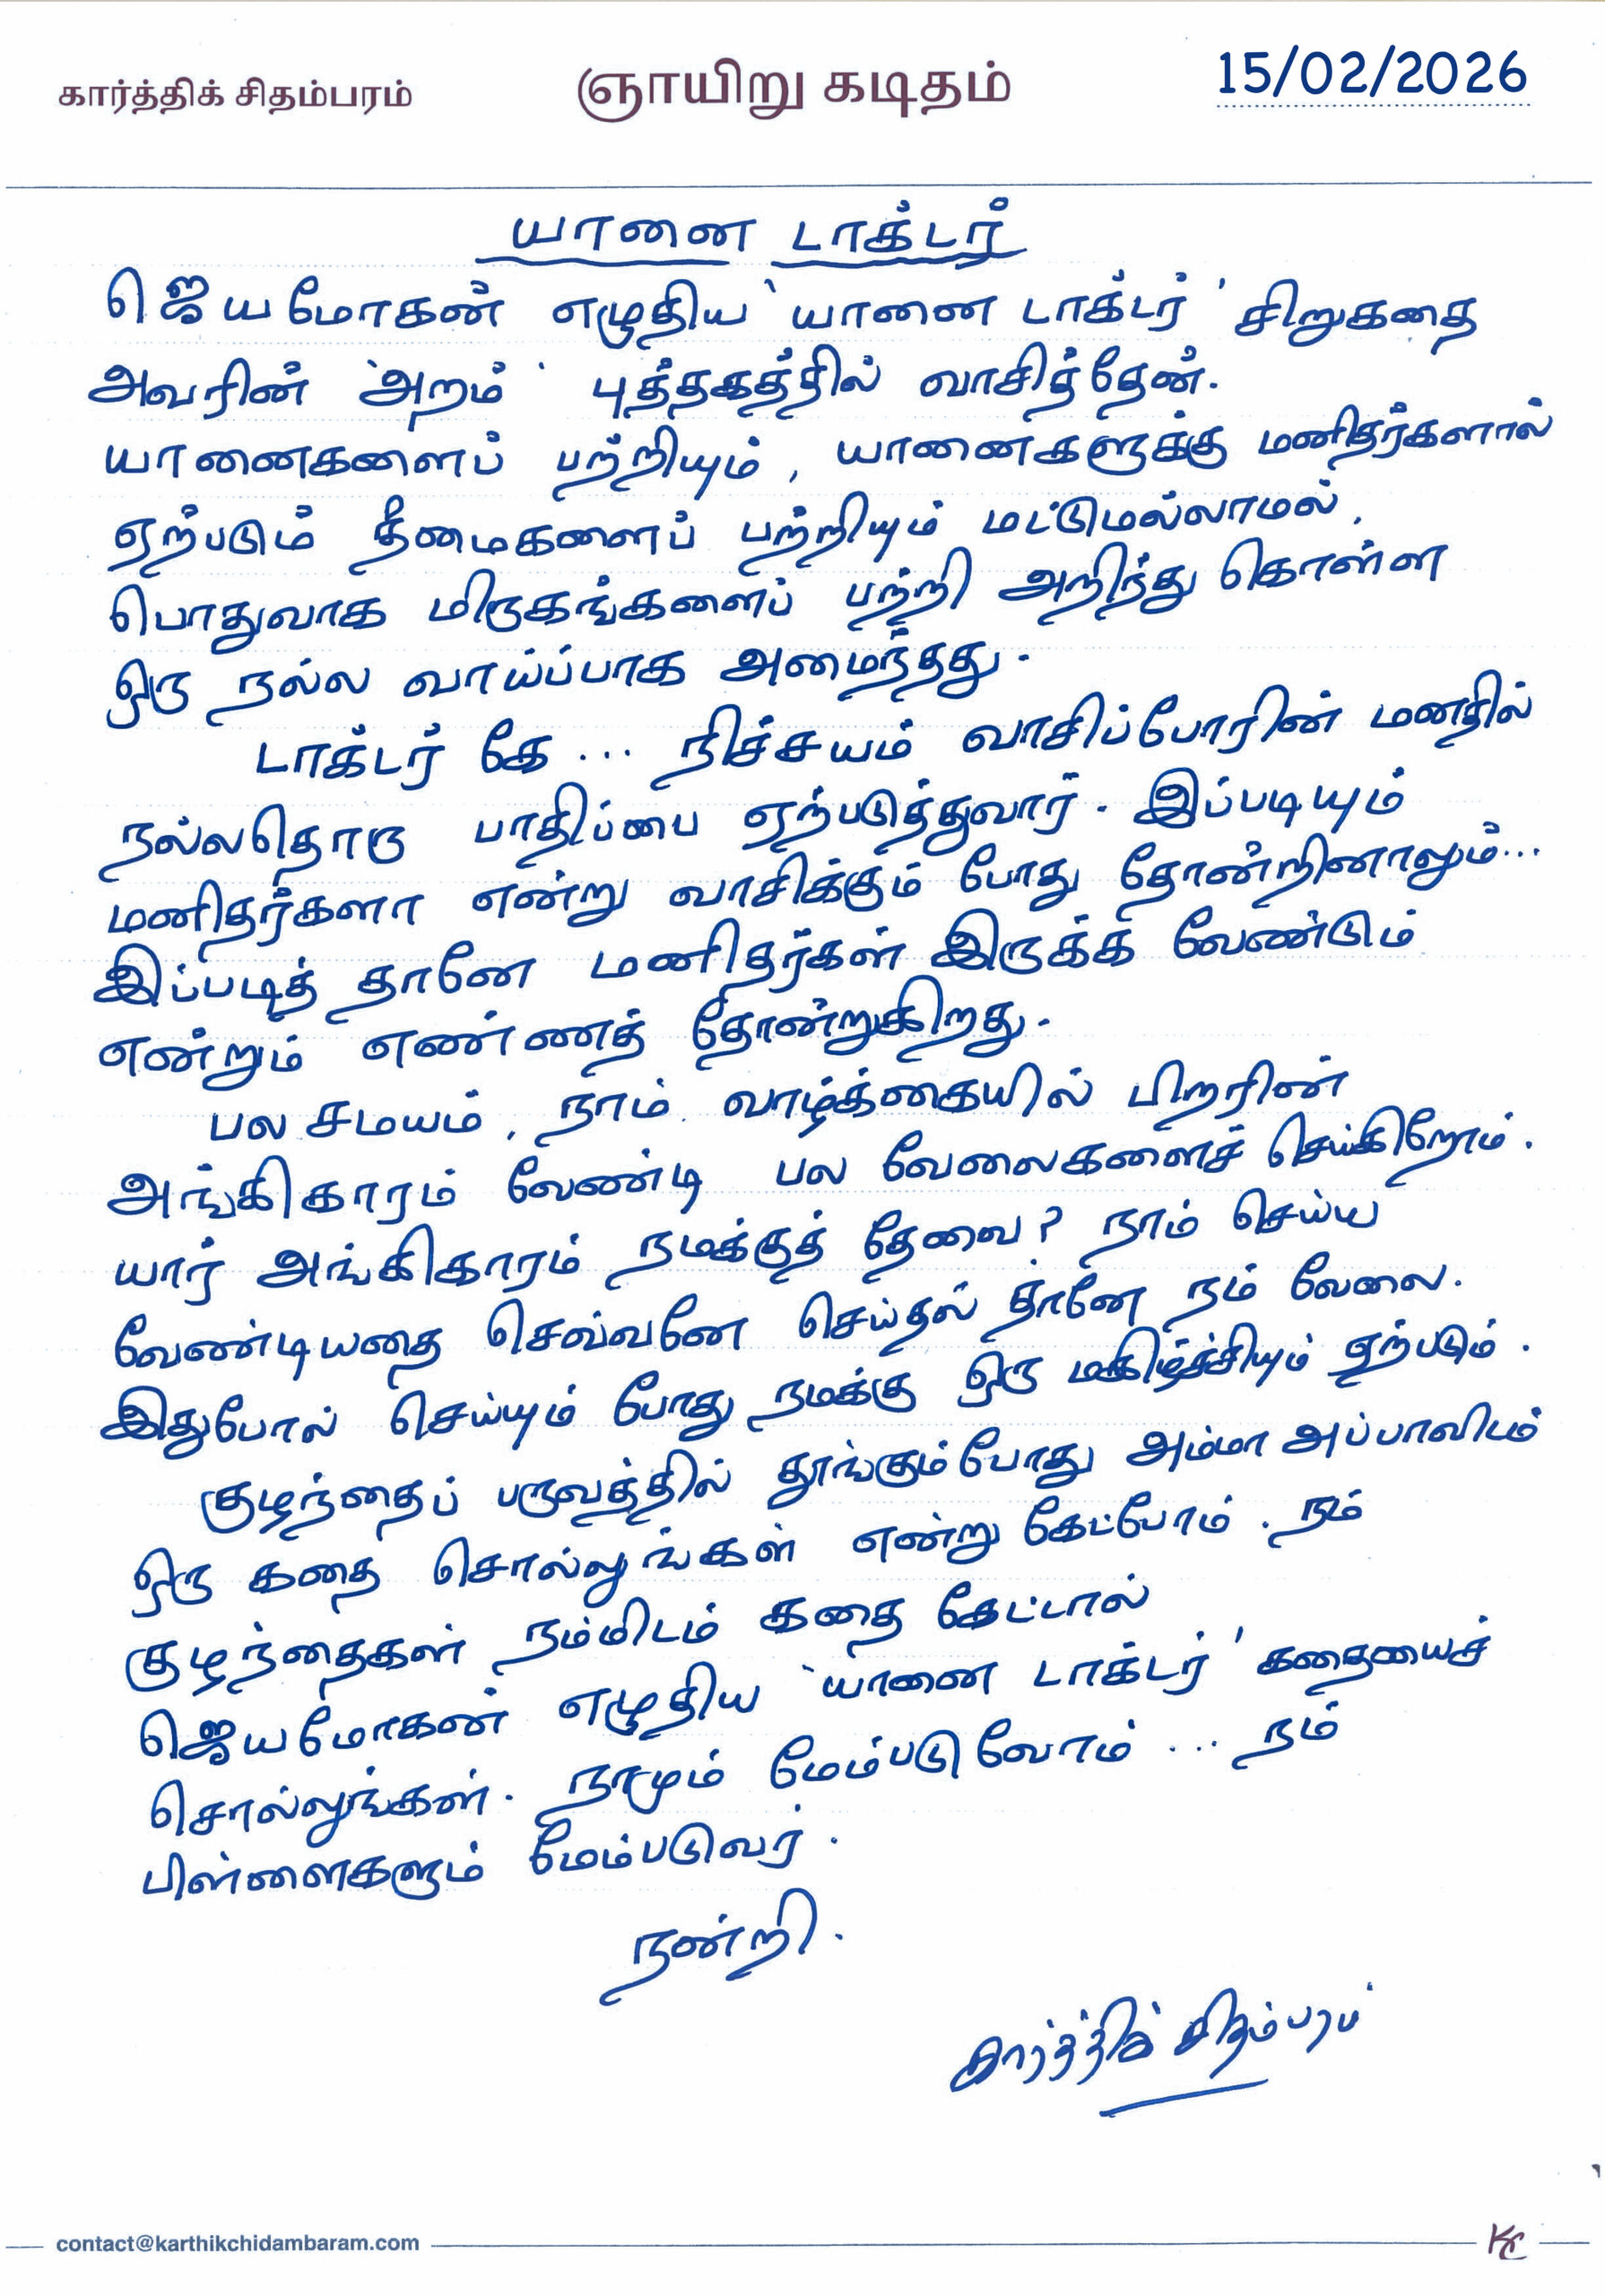 கார்த்திக் சிதம்பரம் ஞாயிறு கடிதம் 15/02/2026
யானை டாக்டர்
ஜெயமோகன் எழுதிய 'யானை டாக்டர்' சிறுகதை
அவரின் 'அறம்' புத்தகத்தில் வாசித்தேன்.
யானைகளைப் பற்றியும், யானைகளுக்கு மனிதர்களால்
ஏற்படும் தீமைகளைப் பற்றியும் மட்டுமல்லாமல்,
பொதுவாக மிருகங்களைப் பற்றி அறிந்து கொள்ள
ஒரு நல்ல வாய்ப்பாக அமைந்தது.
டாக்டர் கே ... நிச்சயம் வாசிப்போரின் மனதில்
நல்லதொரு பாதிப்பை ஏற்படுத்துவார். இப்படியும்
மனிதர்களா என்று வாசிக்கும் போது தோன்றினாலும்...
இப்படித் தானே மனிதர்கள் இருக்க வேண்டும்
என்றும் எண்ணத் தோன்றுகிறது.
பல சமயம், நாம் வாழ்க்கையில் பிறரின்
அங்கிகாரம் வேண்டி பல வேலைகளைச் செய்கிறோம்.
யார் அங்கிகாரம் நமக்குத் தேவை? நாம் செய்ய
வேண்டியதை செவ்வனே செய்தல் தானே நம் வேலை.
இதுபோல் செய்யும் போது நமக்கு ஒரு மகிழ்ச்சியும் ஏற்படும்.
குழந்தைப் பருவத்தில் தூங்கும்போது அம்மா அப்பாவிடம்
ஒரு கதை சொல்லுங்கள் என்று கேட்போம். நம்
குழந்தைகள் நம்மிடம் கதை கேட்டால்
ஜெயமோகன் எழுதிய 'யானை டாக்டர்' கதையைச்
சொல்லுங்கள். நாமும் மேம்படுவோம் ... நம்
பிள்ளைகளும் மேம்படுவர்.
நன்றி.
கார்த்திக் சிதம்பரம்
contact@karthikchidambaram.com KC